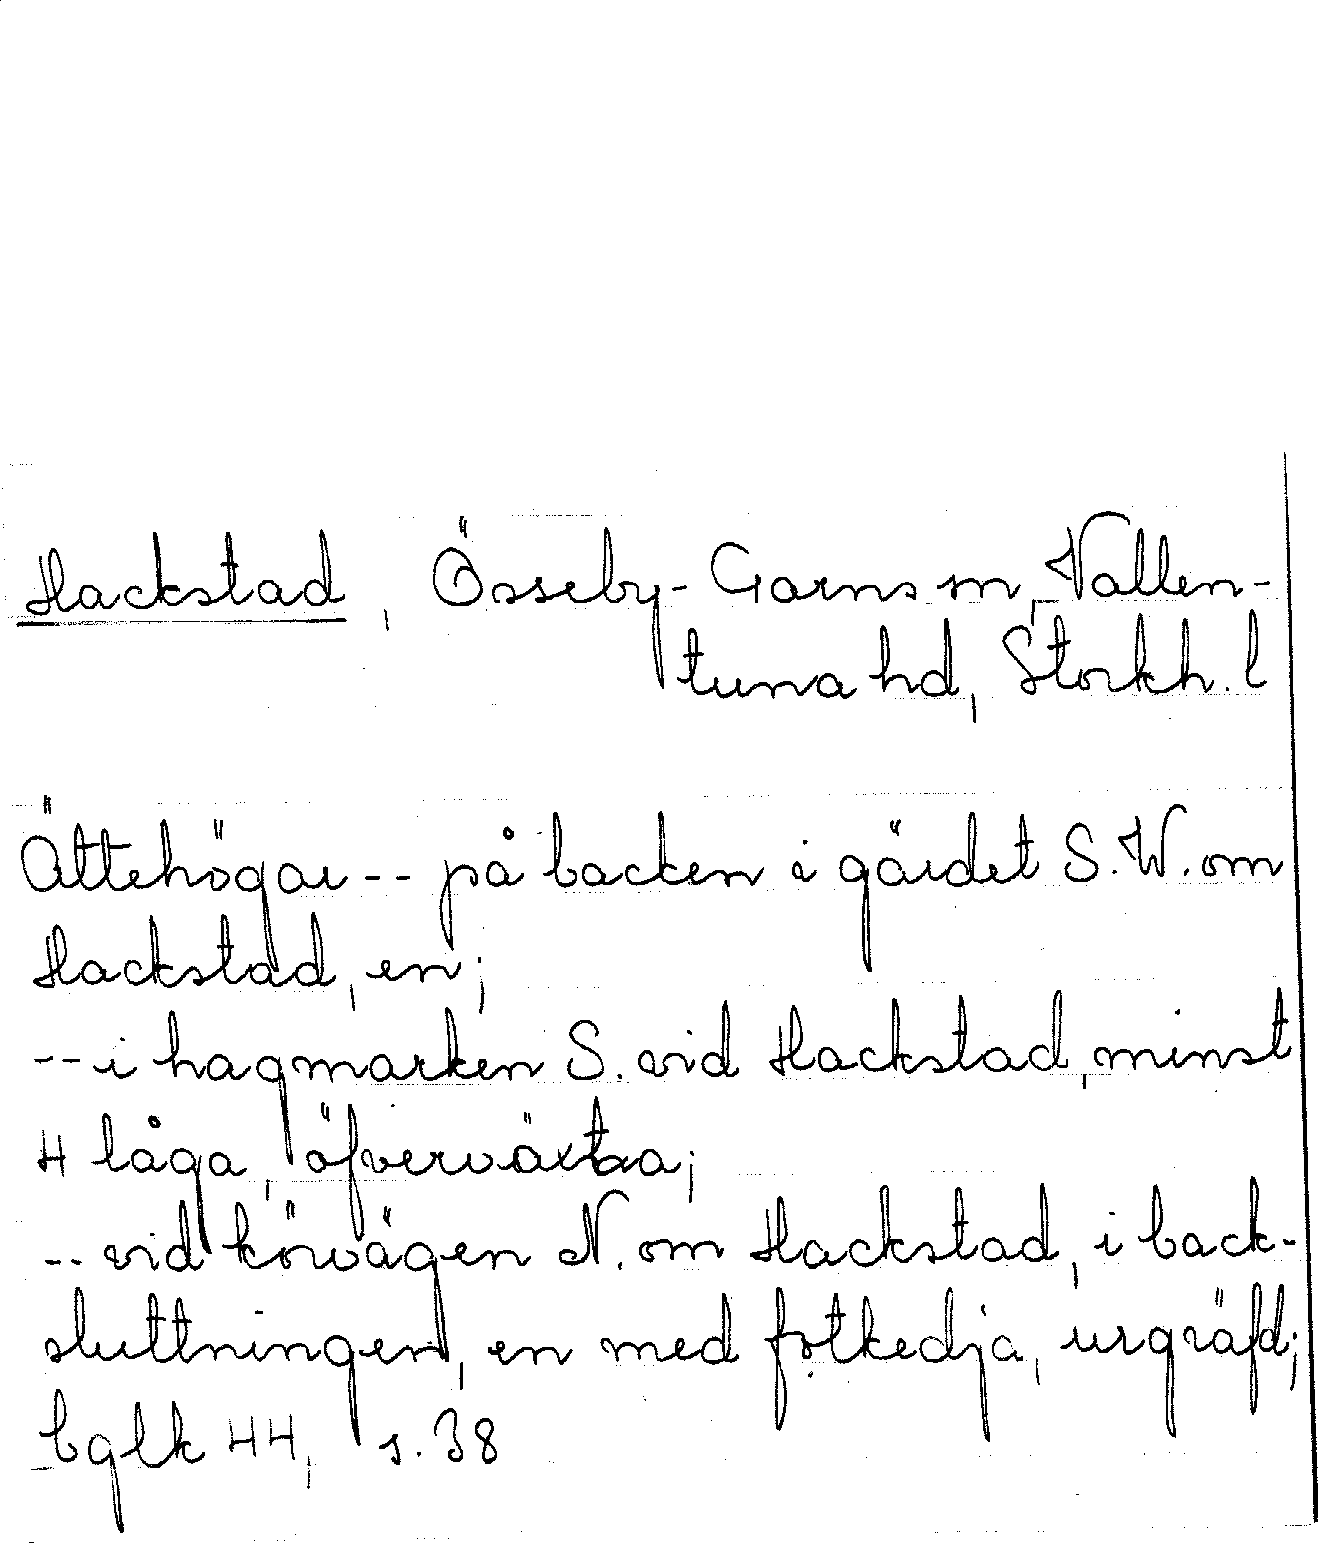 Hackstad, Össeby-Garns sn, Vallen-
tuna hd, Stockh. l
Ättehögar -- på backen i gärdet S.W. om
Hackstad, en;
-- i hagmarken S. vid Hackstad, minst
4 låga, öfvervöxta;
-- vid körvägen N. om Hackstad, i back-
sluttningen, en med fotkedja, urgräfd;
bglk 44, s. 38